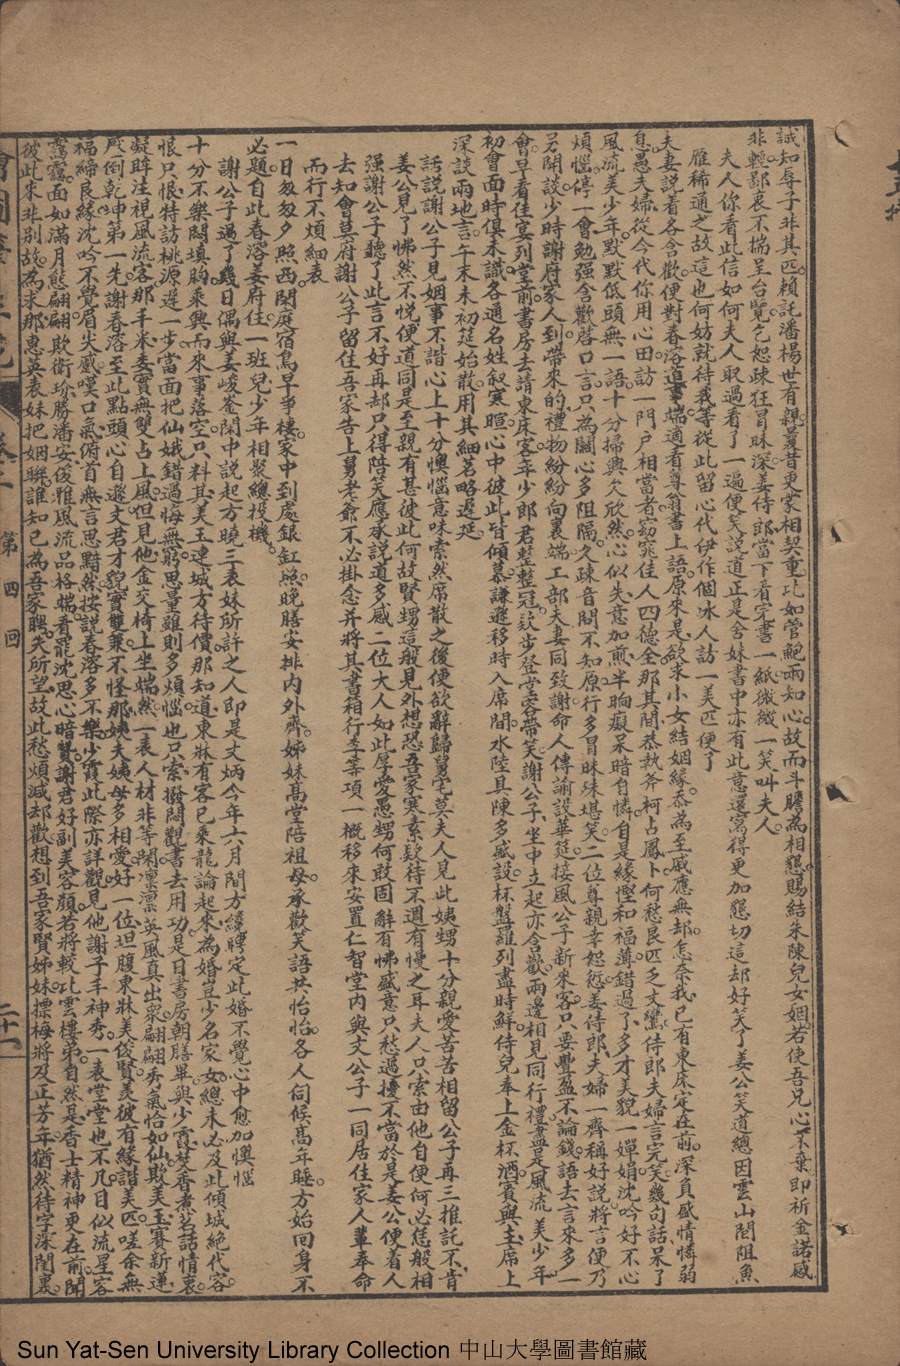 誠知辱子非其匹賴託潘楊世有親蕢昔更蒙相契重比如管鮑兩知心故而斗膽為相懇賜結朱陳兒女姻若使吾兄心不棄即祈金諾感
非輕鄙衷不揣呈台覽乞恕疎狂冒昧深姜侍郎當下看完書一紙微微一笑叫夫人
夫人你看此信如何夫人取過看了一遍便笑說道正是舍妹書中亦有此意還寫得更加懇切這却好笑了姜公笑道總因雲山閣阻魚
雁稀通之故這也何妨就待我等從此留心代伊作個冰人訪一美匹便了
夫妻說着各含歡便對春溶道事端適看尊翁書上語原來是欲求小女結姻緣忝為至戚應無却怎奈我已有東床定在前深負感情憐弱
息愚夫婦從今代你用心田訪一門戶相當者窈窕佳人四德全那其間恭執斧柯占鳳卜何愁良匹乏文鸞侍郎夫婦言完笑幾句話呆了
風流美少年默默低頭無一語十分掃興欠欣然心似失意加煎半晌癡呆暗自憐自是緣慳和福薄錯過了多才美貌一嬋娟沈吟好不心
煩惱停一會勉强含歡啓口言只為關心多阻隔久疎音問不知原行多冒昧殊堪笑二位尊親幸恕愆姜侍郎夫婦一齊稱好說將言便乃
另開談少時謝府家人到帶來的禮物紛紛向裏端工部夫妻同致謝命人傳諭設華筵接風公子新來客只要豐盈不論錢語去言來多一
會早看佳宴列堂前書房去請東床客年少郎君整整冠欵步登堂容帶笑謝公子坐中立起亦含歡兩邊相見同行禮盡是風流美少年
初會面時俱未識各通名姓叙寒暄心中彼此皆傾慕謙遜移時入席間水陸具陳多盛設杯盤羅列盡時鮮侍兒奉上金杯酒賓與主席上
深談兩地言午末未初筵始散用其細茗略遲延
話說謝公子見姻事不諧心上十分懊惱意味索然席散之後便欲辭歸舅宅莫夫人見此姨甥十分親愛苦苦相留公子再三推託不肯
姜公見了怫然不悅便道同是至親有甚彼此何故賢甥這般見外想恐吾家寒素欵待不週有慢之耳夫人只索由他自便何必恁般相
强謝公子聽了此言不好再却只得陪笑應承說道多感二位大人如此厚愛愚甥何敢固辭有怫盛意只愁過擾不當於是姜公便着人
去知會莫府謝公子留住吾家告上舅老爺不必掛念并將其書箱行李等項一概移來安置仁智堂內與文公子一同居住家人輩奉命
而行不煩細表
一日匆匆夕照西閑庭宿鳥早爭棲家中到處銀缸照晚膳安排內外齊姊妹萬堂陪祖母承歡笑語共怡怡各人伺候高年睡方始回身不
必題自此春溶姜府住一班兒少年相聚總投機
謝公子過了幾日偶與姜峻峯閑中說起方曉三表妹所許之人即是文炳今年六月間方纔聘定此婚不覺心中愈加懊惱
十分不樂悶填胸乘興而來事落空只料其美玉連城方待價那知道東牀有客已乘龍論起來為婚豈少名家女總未必及此傾城絕代容
恨只恨特訪桃源遲一步當面把仙娥錯過悔無窮思量雖則多煩惱也只索撥悶觀書去用功是日書房朝膳畢與少霞焚香煮茗話情衷
凝眸注視風流客那手米麥實無雙占上風但見他金交椅上坐端然一表人材非等閑凜凜英風真出衆翩翩秀氣恰如仙欺美玉賽新蓮
壓倒乾坤第一先謝春溶至此點頭心自遜文君才貌實雙兼不怪那姨夫姨母多相愛好一位坦腹東牀美俊賢羨彼有緣諧美匹嗟余無
福締良緣沈吟不覺眉失感嘆口氣俯首無言思黯然按說春溶多不樂少霞此際亦詳觀見他謝子丰神秀一表堂堂也不凡目似流星容
靄靄面如滿月態翩翩欺衛玠勝潘安俊雅風流品格端看罷沈思心暗贊謝君好副美容顏若將較比雲樓弟自然是香士精神更在前聞
彼此來非別故為求那惠英表妹把姻聯誰知已為吾家聘失所望故此愁煩減却歡想到吾家賢姊妹摽梅將及正芳年猶然待字深閨裏
第四回
二十一
Sun Yat-Sen University Library Collection 中山大學圖書館藏